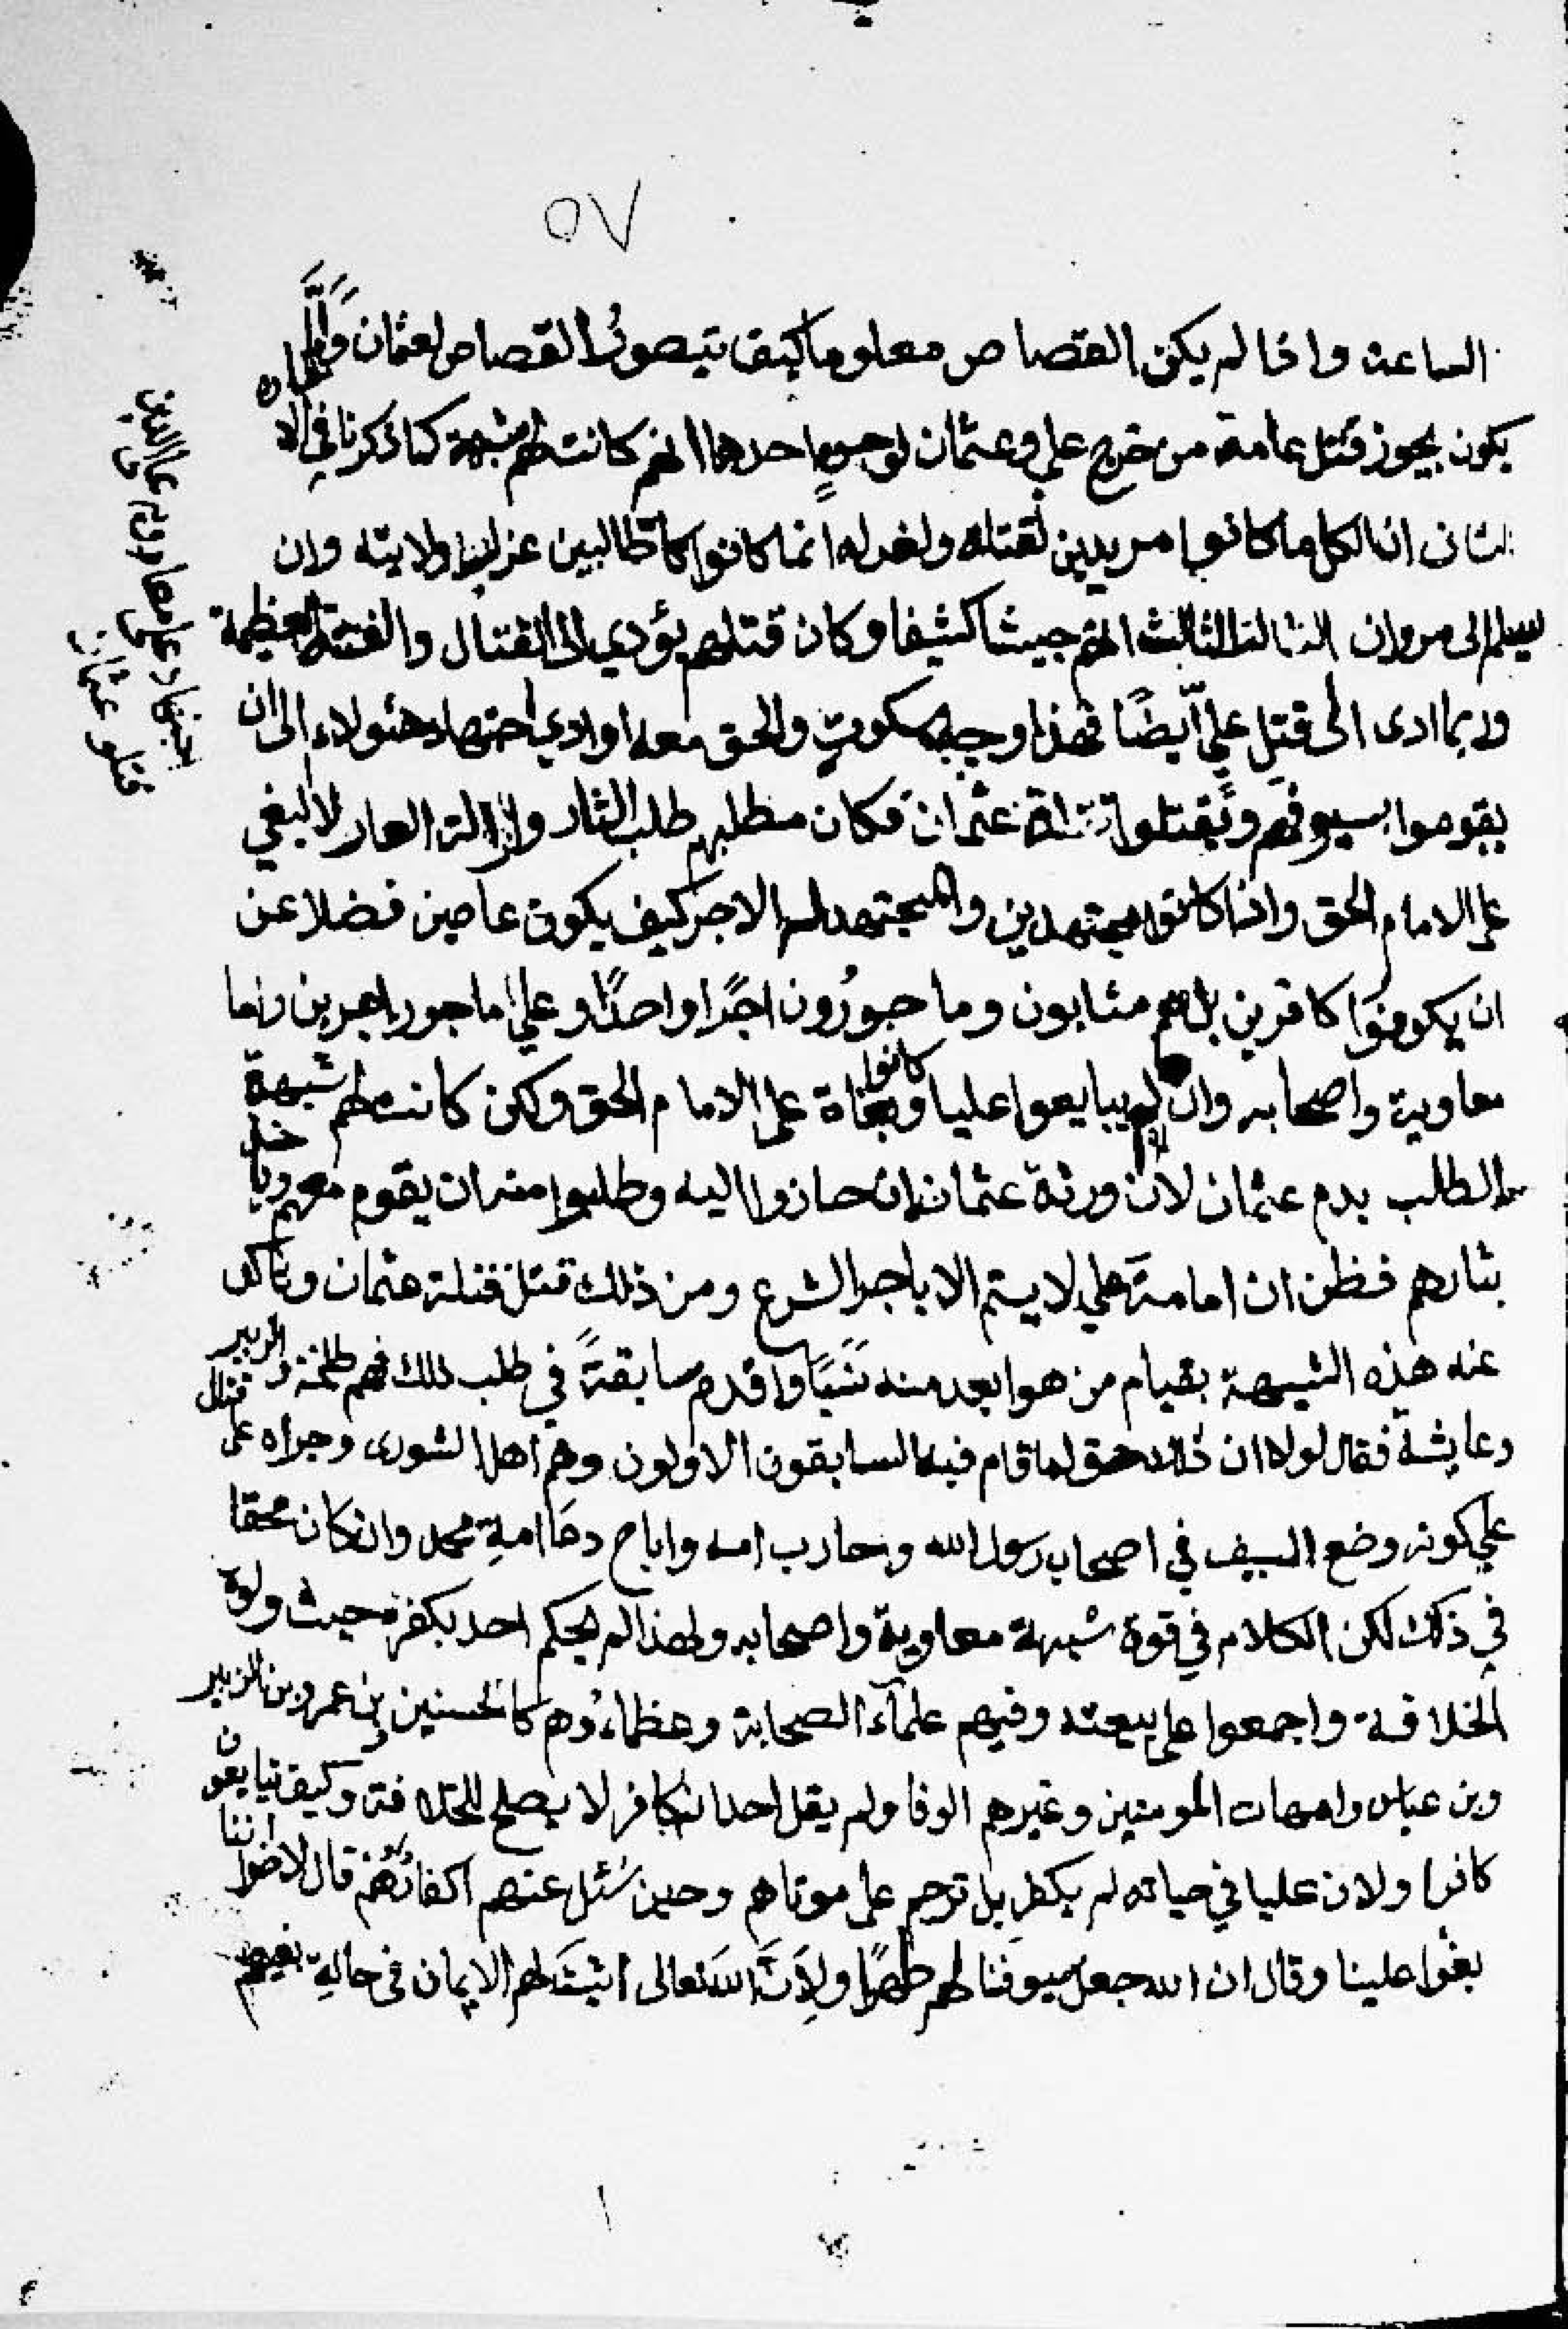 ٥٧
الساعة واذا لم يكن القصاص معلوما كيف يتصور القصاص لعثمان
يكون يجوز قتل عامة من خرج علي وعثمان لوجوه احدها انهم كانت لهم شبهة كما ذكرنا في
الثاني ان الكل ما كانوا مريدين لقتله ولغدله انما كانوا طالبين عزله ولايته وان
يسلم الى مروان الثالث انهم جيشا كثيفا وكان قتلهم يؤدي الى القتال والفتنة العظيمة
وربما ادى الى قتل علي ايضًا فهذا وجه سكوته والحق معه اودي اجتهاد هئولاء الى ان
يقوموا بسيوفهم ويقتلوا قتلة عثمان فكان مطلبهم طلب الثار وازالة العار لا البغي
على الامام الحق واذا كانوا مجتهدين والمجتهد له الاجر كيف يكون عاصين فضلا عن
ان يكونوا كافرين بل هم مثابون وماجورون اجرًا واحدًا وعلي ماجور اجرين واما
معاوية واصحابه وان لم يبايعوا عليا وكانوا بغاة على الامام الحق ولكن كانت لهم شبهة
الطلب بدم عثمان لان ورثة عثمان انحازوا اليه وطلبوا منه ان يقوم معهم
بثارهم فظن ان امامة علي لا يتم الا باجرا الشرع ومن ذلك قتل قتلة عثمان وتاكد
عنه هذه الشبهة بقيام من هو ابعد منه نسبًا واقدم سابقةً في طلب ذلك فهم طلحة والزبير
وعايشة فقال لولا ان ذلك حق لما قام فيه السابقون الاولون وهم اهل الشورى وجراه على قتال
علي كونه وضع السيف في اصحاب رسول الله وحارب امه واباح دما امة محمد وان كان محقا
في ذلك لكن الكلام في قوة شبهة معاوية واصحابه ولهذا لم يحكم احد بكفره حيث ولوه
الخلافة واجمعوا على بيعته وفيهم علمآء الصحابة وعظماءُهم كالحسنين بن عمر وبن الزبير
وبن عباس وامهات المومنين وغيرهم الوفا ولم يقل احد انه كافر لا يصلح للخلافة وكيف يبايعون
كافرا ولان عليا في حياته لم يكفر بل ترحم على موتاهم وحين سُئل عنهم اكفار هم قال لا اخواننا
بغوا علينا وقال ان الله جعل سيوفنا لهم طهرًا ولِاَنَّ الله تعالى اثبت لهم الايمان في حالة بغيهم
اجتهاد علي
قتلو عثمان